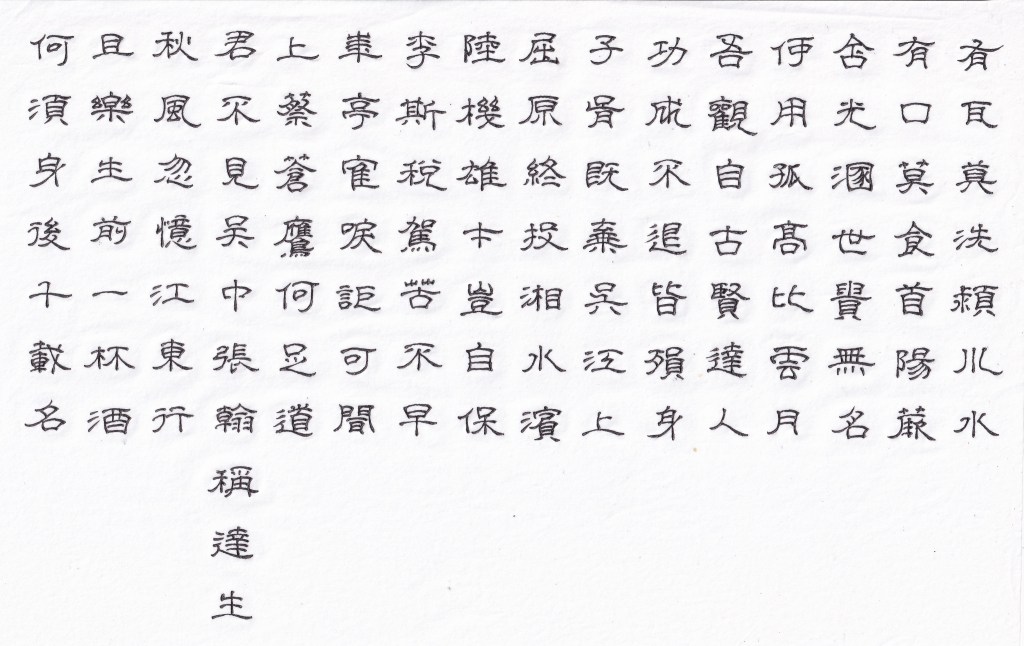 有耳莫洗潁川水
有口莫食首陽蕨
含光溷世貴無名
伊用孤高比雲月
吾觀自古賢達人
功成不退皆殞身
子胥既棄吳江上
屈原終投湘水濱
陸機雄才豈自保
李斯稅駕苦不早
華亭鶴唳詎可聞
上蔡蒼鷹何足道
君不見吳中張翰稱達生
秋風忽憶江東行
且樂生前一杯酒
何須身後千載名